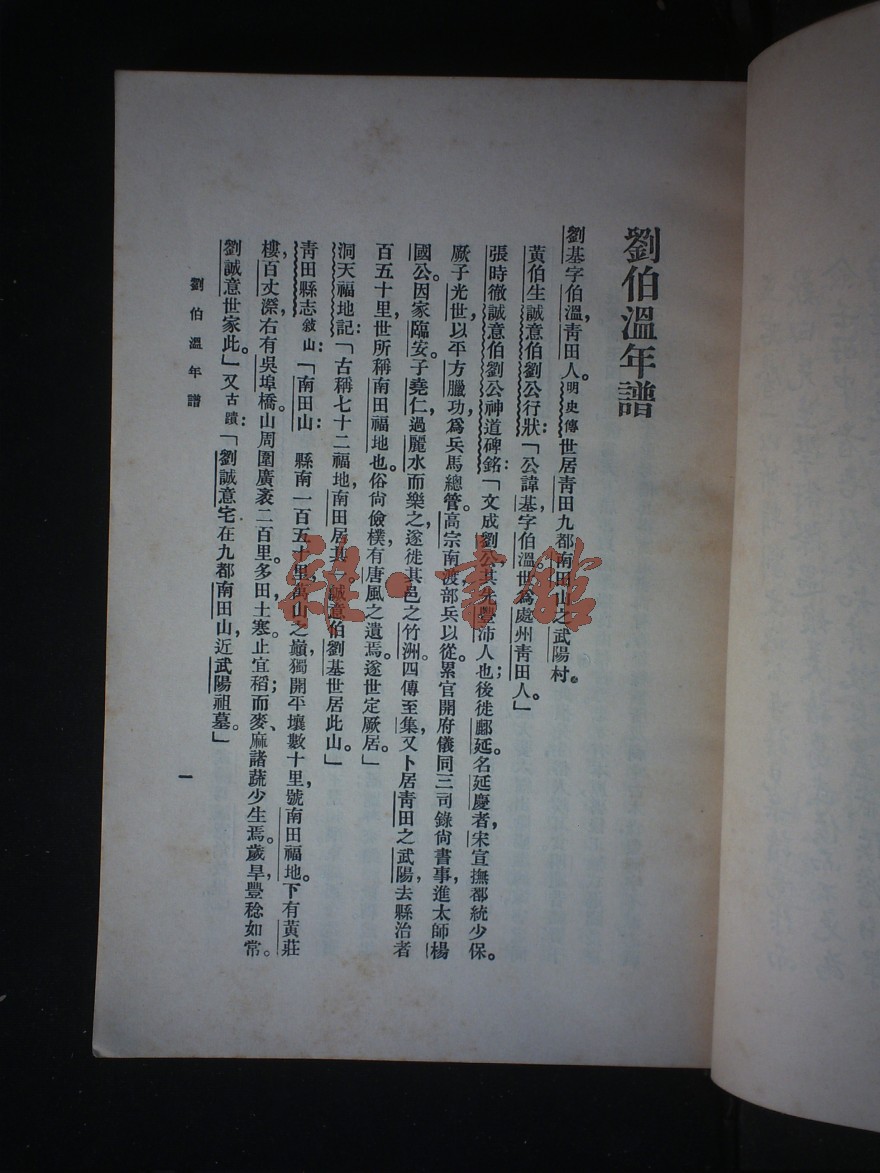 劉伯溫年譜
劉基字伯溫，青田人。明史傳世居青田九都南田山之武陽村。
黃伯生誠意伯劉公行狀：「公諱基字伯溫。世爲處州青田人。」
張時徹誠意伯劉公神道碑銘：「文成劉公其先豐沛人也；後徙鄜延。名延慶者，宋宣撫都統少保。
厥子光世以平方臘功爲兵馬總管。高宗南渡部兵以從。累官開府儀同三司錄尚書事，進太師楊
國公。因家臨安。子堯仁，過麗水而樂之，遂徙其邑之竹洲。四傳至集，又卜居青田之武陽，去縣治者
百五十里，世所稱南田福地也。俗尚儉樸，有唐風之遺焉。遂世定厥居。」
洞天福地記：「古稱七十二福地，南田居其一。誠意伯劉基世居此山。」
青田縣志敍山：「南田山　縣南一百五十里，萬山之巔，獨開平壤數十里，號南田福地。下有黃莊
樓，百丈漈，右有吳埠橋。山周圍廣袤二百里。多田土寒，止宜稻；而麥、麻諸蔬少生焉。歲旱，豐稔如常。
劉誠意世家此。」又古蹟：「劉誠意宅在九都南田山近武陽祖墓。」
劉伯溫年譜
一
雜·書館